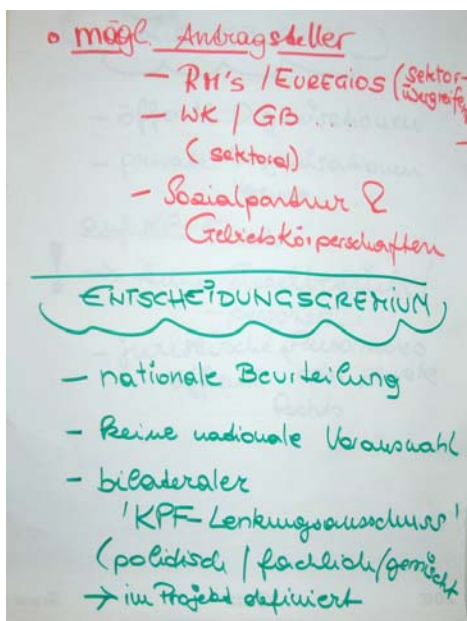 • mögl. Antragsteller
– RM's / EUREGIOS (sektor-
übergreifen
– WK / GB ...
(sektoral)
– Sozialpartner &
Gebietskörperschaften
ENTSCHEIDUNGSGREMIUM
– nationale Beurteilung
– keine nationale Vorauswahl
– bilateraler
'KPF-Lenkungsausschuss'
(politisch / fachlich/gemischt
→ im Projekt definiert